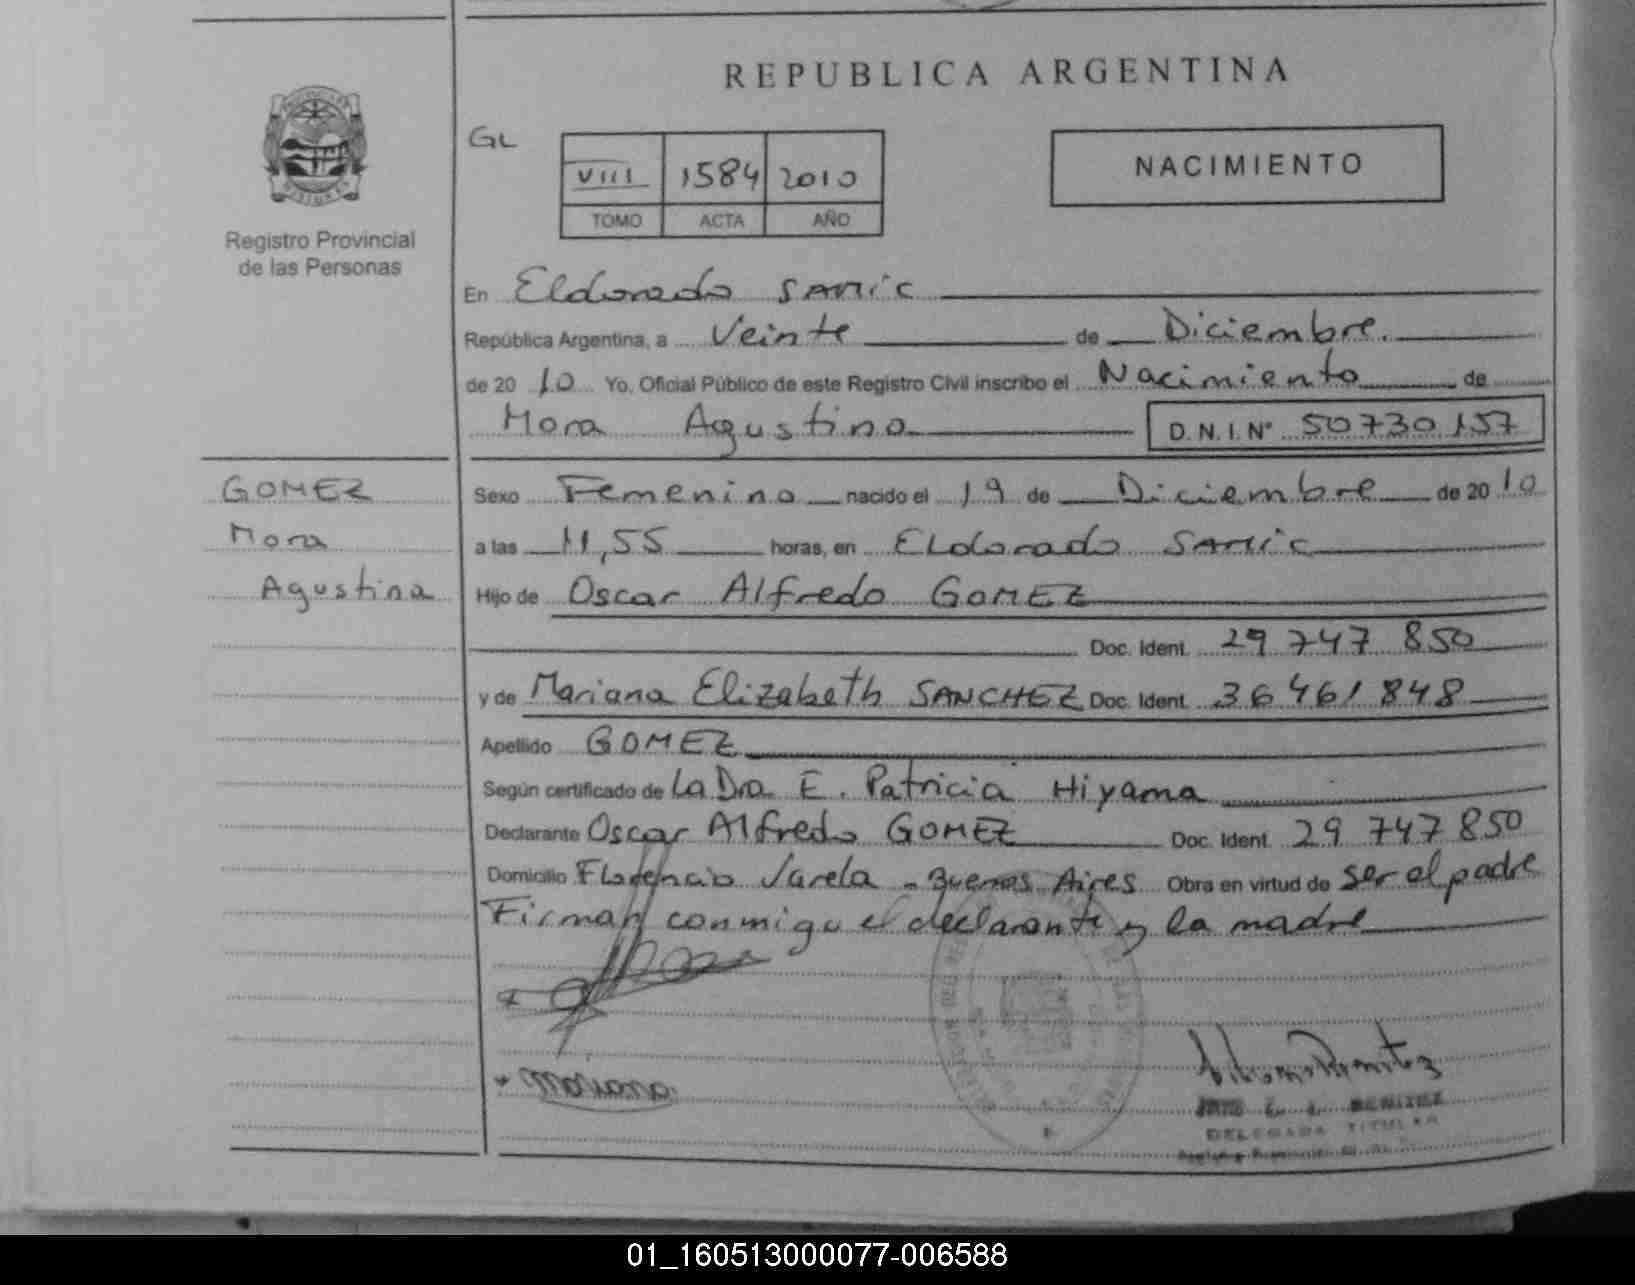 REPUBLICA ARGENTINA
GL
VIII 1584 2010
TOMO ACTA AÑO
NACIMIENTO
Registro Provincial
de las Personas
En Eldorado SAMIC
República Argentina, a Veinte de Diciembre.
de 20 10 Yo, Oficial Público de este Registro Civil inscribo el Nacimiento de
Mora Agustina D.N.I. N° 50730157
GOMEZ
Mora
Agustina
Sexo Femenino nacido el 19 de Diciembre de 20 10
a las 11,55 horas, en ELdorado SAMIC
Hijo de Oscar Alfredo GOMEZ
Doc. Ident. 29 747 850
y de Mariana Elizabeth SANCHEZ Doc. Ident. 36 461 848
Apellido GOMEZ
Según certificado de La Dra E. Patricia Hiyama
Declarante Oscar Alfredo GOMEZ Doc. Ident. 29 747 850
Domicilio Florencio Varela - Buenos Aires Obra en virtud de ser el padre
Firman conmigo el declarante y la madre
Mariana
BENITEZ
DELEGADA TITULAR
01_160513000077-006588